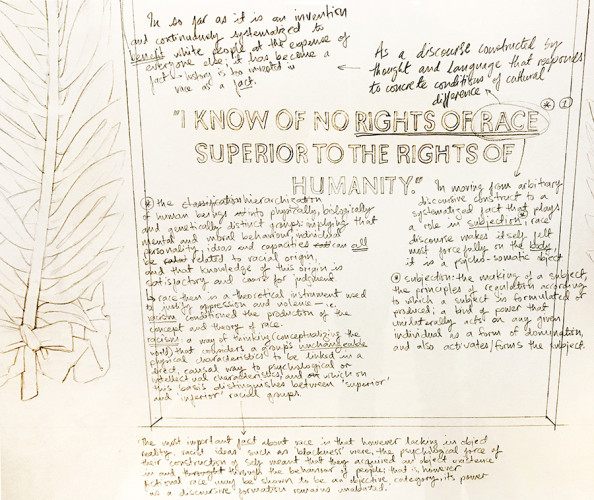 In so far as it is an invention
and continuously systematized to
benefit white people at the expense of
everyone else, it has become a
fact - history is too invested in
race as a fact.
As a discourse constructed by
thought and language that responds
to concrete conditions of cultural
difference
* 1
"I KNOW OF NO RIGHTS OF RACE
SUPERIOR TO THE RIGHTS OF
HUMANITY."
* the classification hierarchization
of human beings into physically, biologically
and genetically distinct groups: implying that
mental and moral behaviour, individual
personality, ideas and capacities can all
be related to racial origin,
and that knowledge of this origin is
satisfactory and cause for judgment.
↳ race then is a theoretical instrument used
to justify oppression and violence – i.e.
racism conditioned the production of the
concept and theory of race.
racism: a way of thinking (conceptualizing the
world) that considers a group's unchangeable
physical characteristics to be linked in a
direct, causal way to psychological or
intellectual characteristics, and which on
this basis distinguishes between 'superior'
and 'inferior' racial groups.
In moving from arbitrary
discursive construct to a
systematized fact that plays
a role in subjection* race
discourse makes itself felt
most forcefully on the body,
it is a psycho-somatic object
* subjection: the making of a subject,
the principles of regulation according
to which a subject is formulated or
produced; a kind of power that
unilaterally acts on any given
individual as a form of domination,
and also activates/forms the subject.
'The most important fact about race is that however lacking in object
reality, racist ideas such as 'blackness' were, the psychological force of
their construction of self meant that they acquired an object existence
in and through the behavior of people; that is, however
fictional race may be shown to be an objective category, its power
as a discursive formation remains unabated.'